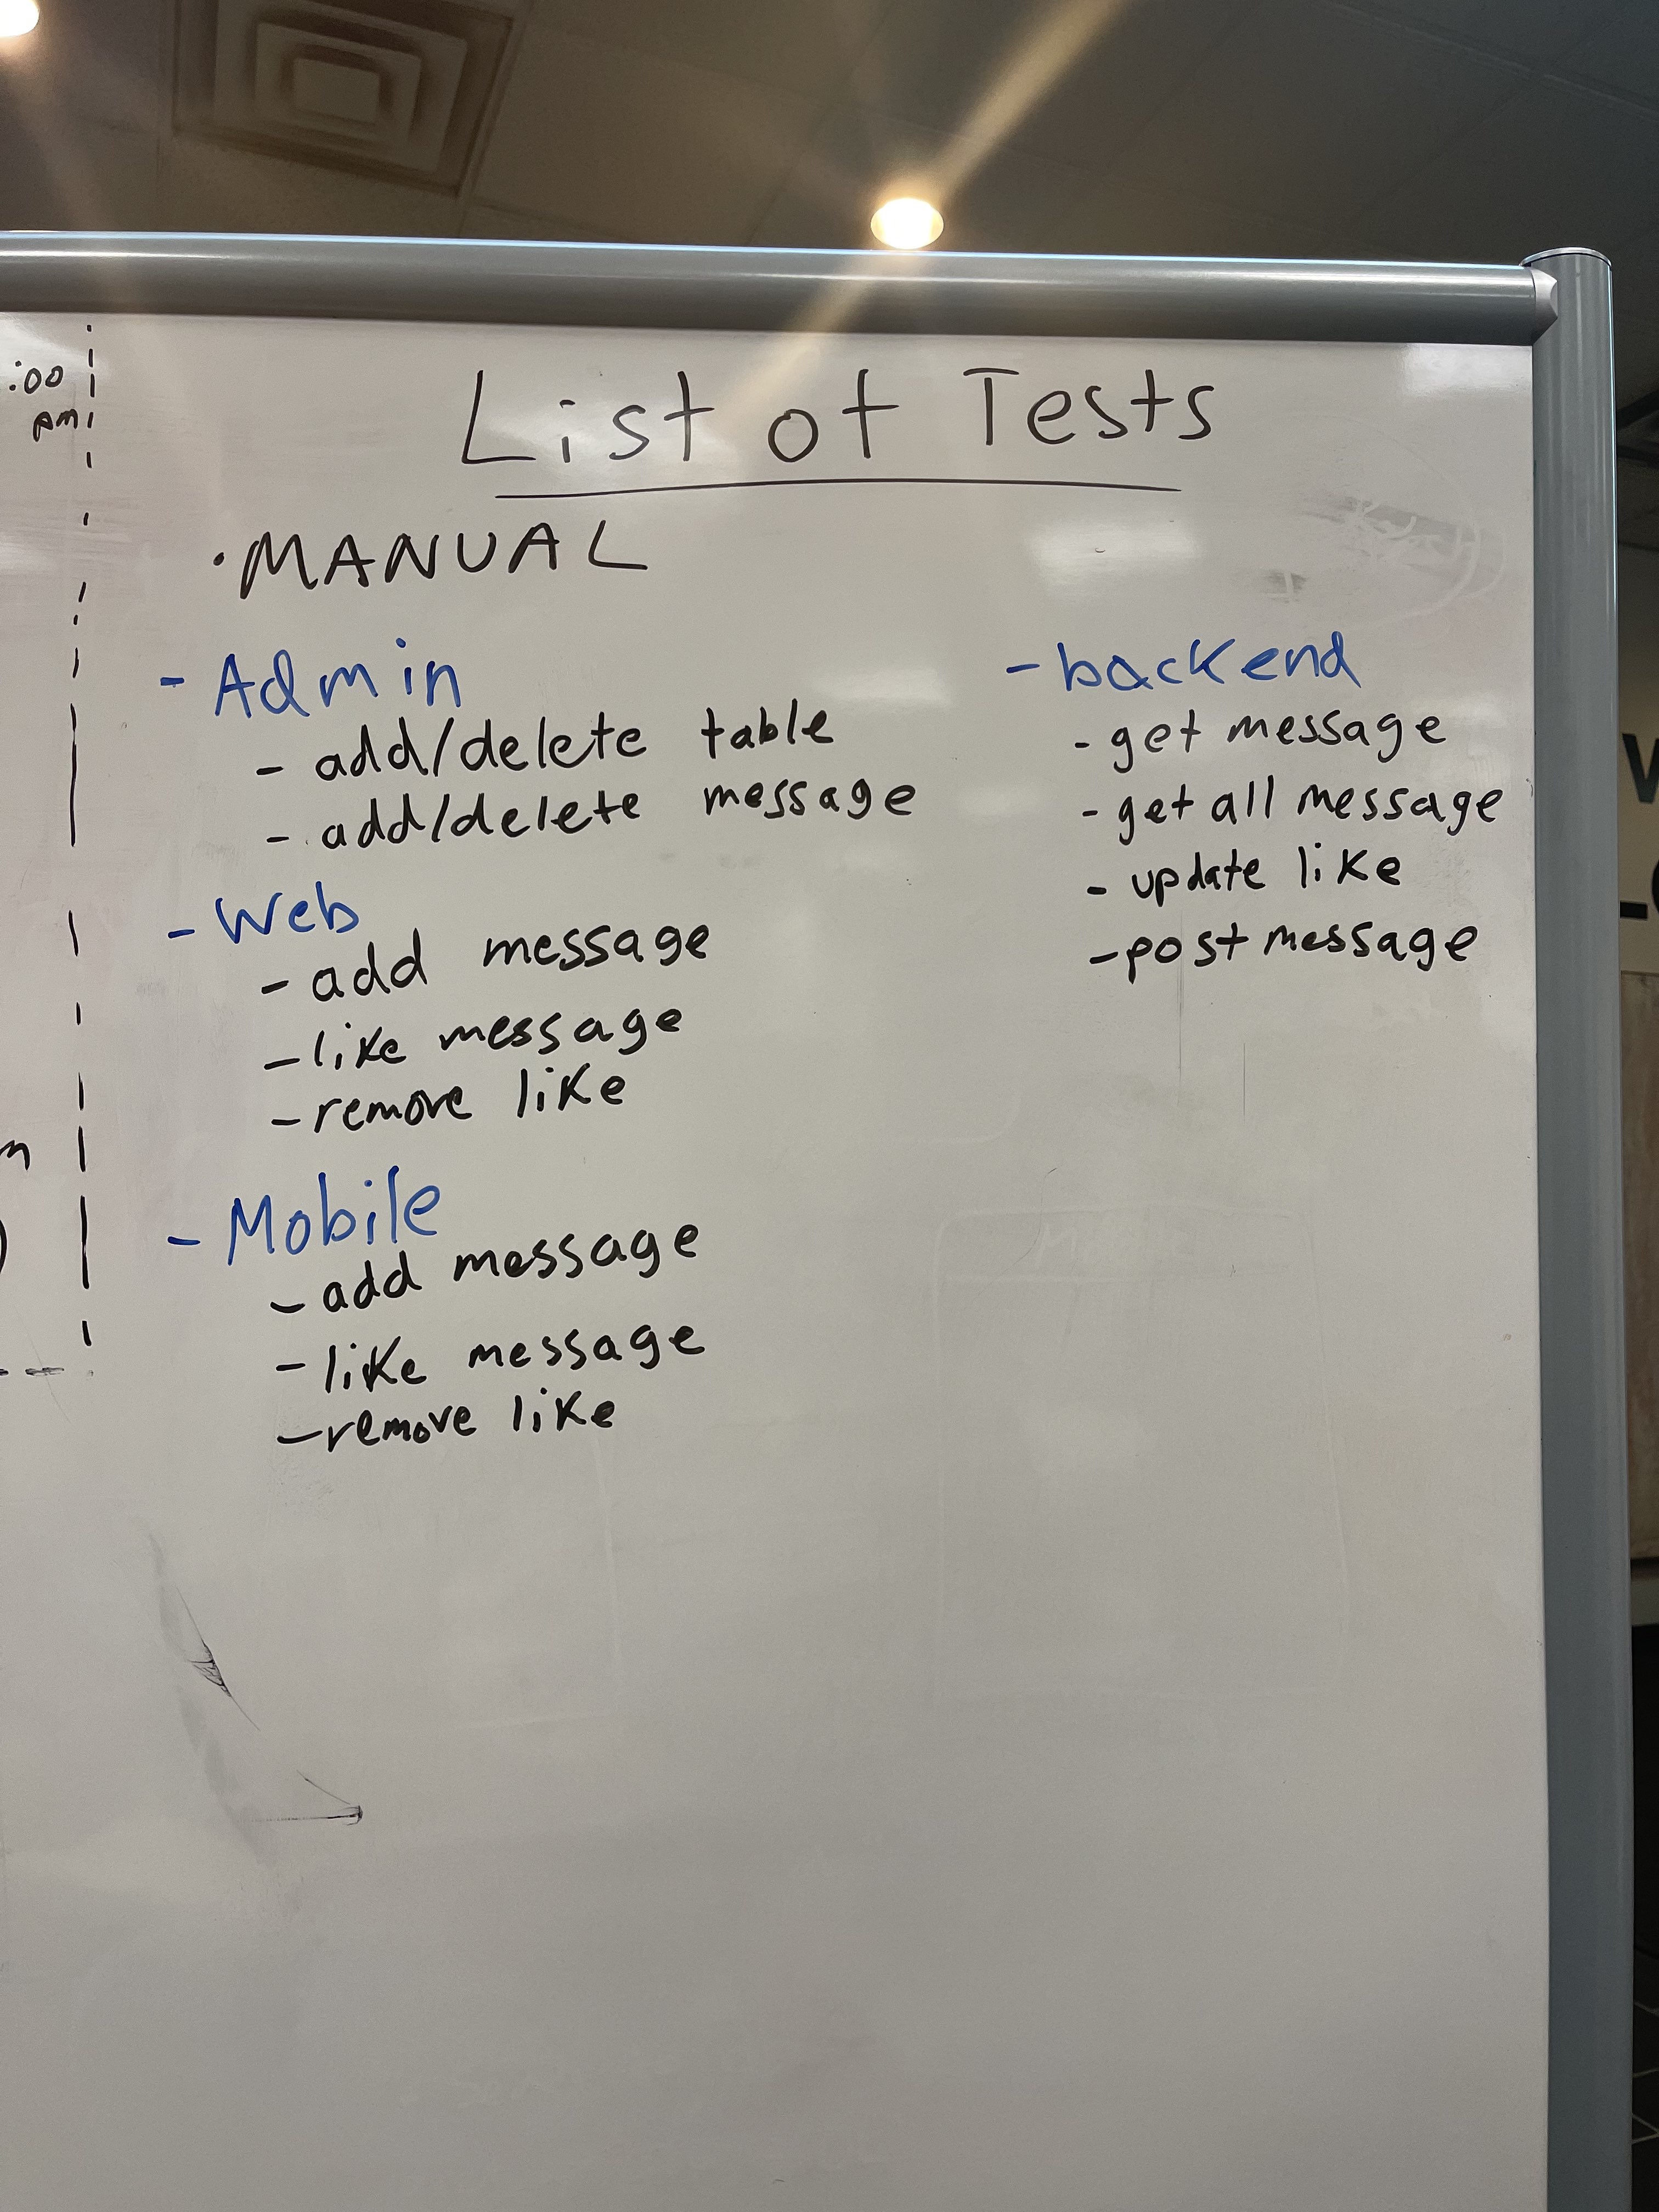 :00
AM
List of Tests
• MANUAL
- Admin
- add/delete table
- add/delete message
- Web
- add message
- like message
- remove like
- Mobile
- add message
- like message
- remove like
- backend
- get message
- get all message
- update like
- post message